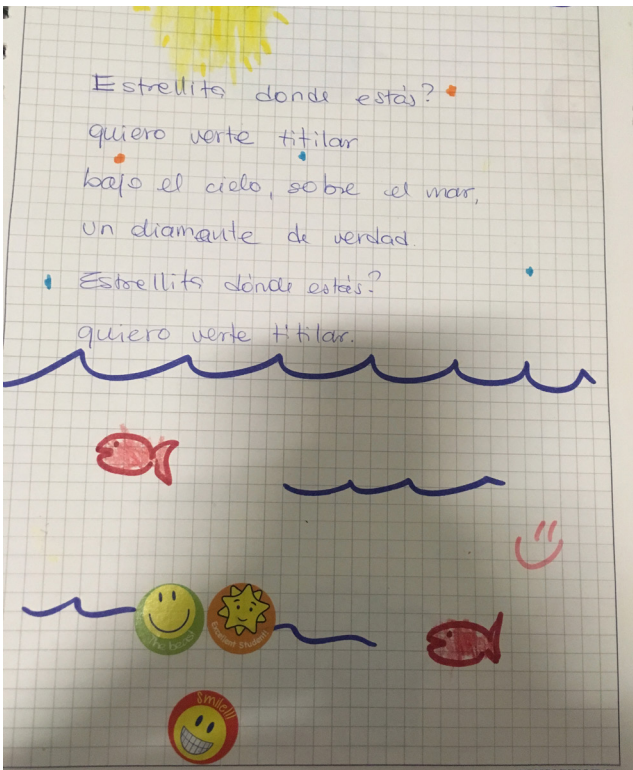 Estrellita donde estás?
quiero verte titilar
bajo el cielo, sobre el mar,
un diamante de verdad
Estrellita dónde estás?
quiero verte titilar.
the best!
Excellent Student
Smile!!!